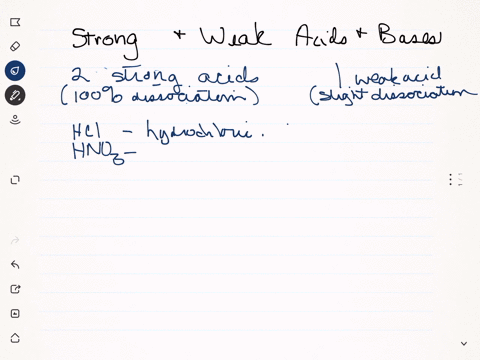 Strong + Weak Acids + Bases
2 strong acids
(100% dissociation)
1 weak acid
(slight dissociation
HCl - hydrochloric.
HNO3 -